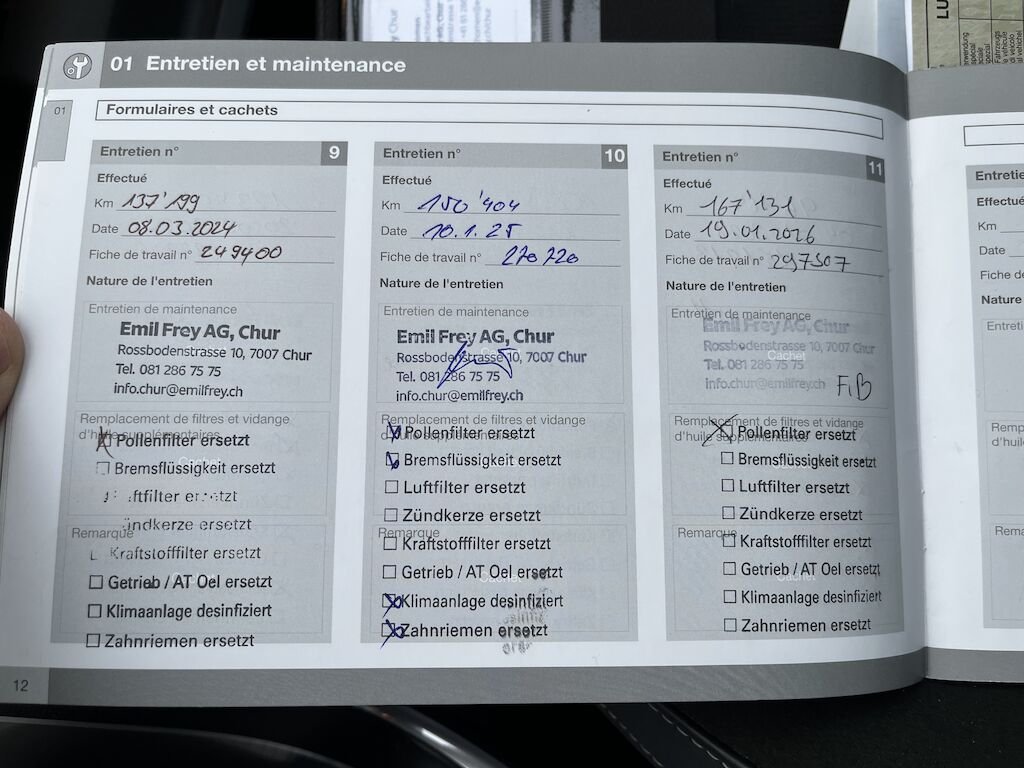 01 Entretien et maintenance
01
Formulaires et cachets
Entretien n° 9
Effectué
Km 137'199
Date 08.03.2024
Fiche de travail n° 249400
Nature de l'entretien
Entretien de maintenance
Emil Frey AG, Chur
Rossbodenstrasse 10, 7007 Chur
Tel. 081 286 75 75
info.chur@emilfrey.ch
Remplacement de filtres et vidange
d'huile supplémentaires
Pollenfilter ersetzt
Bremsflüssigkeit ersetzt
ftfilter ersetzt
ündkerze ersetzt
Remarque
Kraftstofffilter ersetzt
Getrieb / AT Oel ersetzt
Klimaanlage desinfiziert
Zahnriemen ersetzt
Entretien n° 10
Effectué
Km 150'404
Date 10.1.25
Fiche de travail n° 270720
Nature de l'entretien
Entretien de maintenance
Emil Frey AG, Chur
Rossbodenstrasse 10, 7007 Chur
Tel. 081 286 75 75
info.chur@emilfrey.ch
Remplacement de filtres et vidange
d'huile supplémentaires
Pollenfilter ersetzt
Bremsflüssigkeit ersetzt
Luftfilter ersetzt
Zündkerze ersetzt
Remarque
Kraftstofffilter ersetzt
Getrieb / AT Oel ersetzt
Klimaanlage desinfiziert
Zahnriemen ersetzt
Entretien n° 11
Effectué
Km 167'131
Date 19.01.2026
Fiche de travail n° 297307
Nature de l'entretien
Entretien de maintenance
Emil Frey AG, Chur
Rossbodenstrasse 10, 7007 Chur
Cachet
Tel. 081 286 75 75
info.chur@emilfrey.ch FIB
Remplacement de filtres et vidange
d'huile supplémentaires
Pollenfilter ersetzt
Bremsflüssigkeit ersetzt
Luftfilter ersetzt
Zündkerze ersetzt
Remarque
Kraftstofffilter ersetzt
Getrieb / AT Oel ersetzt
Cachet
Klimaanlage desinfiziert
Zahnriemen ersetzt
12
Effectué
Km
Date
Nature